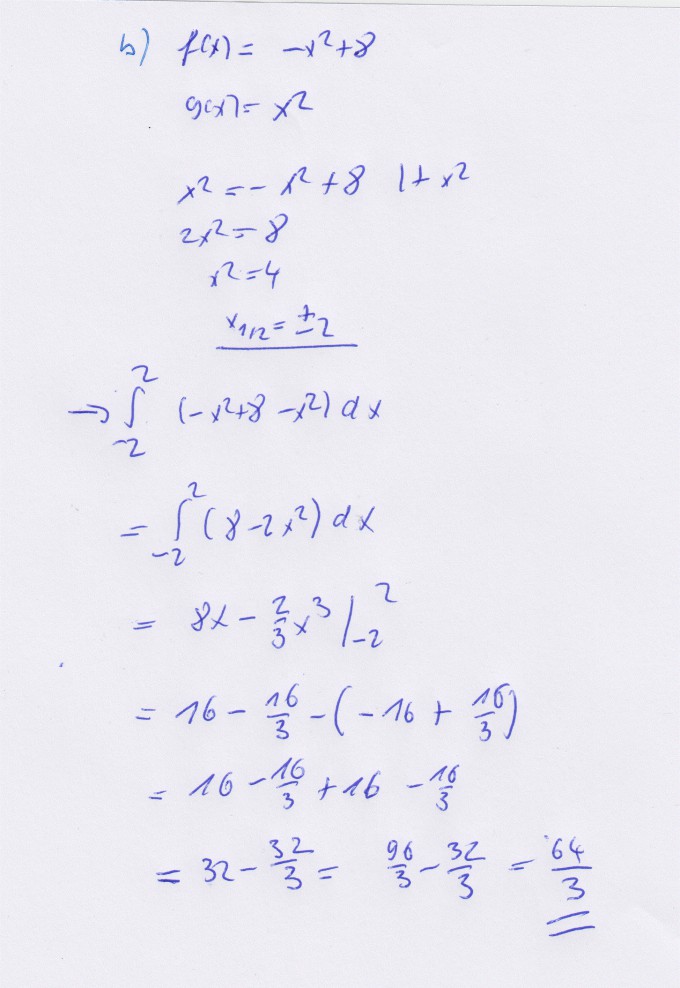 b) f(x) = -x²+8
g(x) = x²
x² = -x² + 8 |+ x²
2x² = 8
x² = 4
x₁/₂ = ±2
→ ∫₋₂² (-x²+8 -x²) dx
= ∫₋₂² (8-2x²) dx
= 8x - 2/3 x³ |₋₂²
= 16 - 16/3 - (-16 + 16/3)
= 16 - 16/3 + 16 - 16/3
= 32 - 32/3 = 96/3 - 32/3 = 64/3